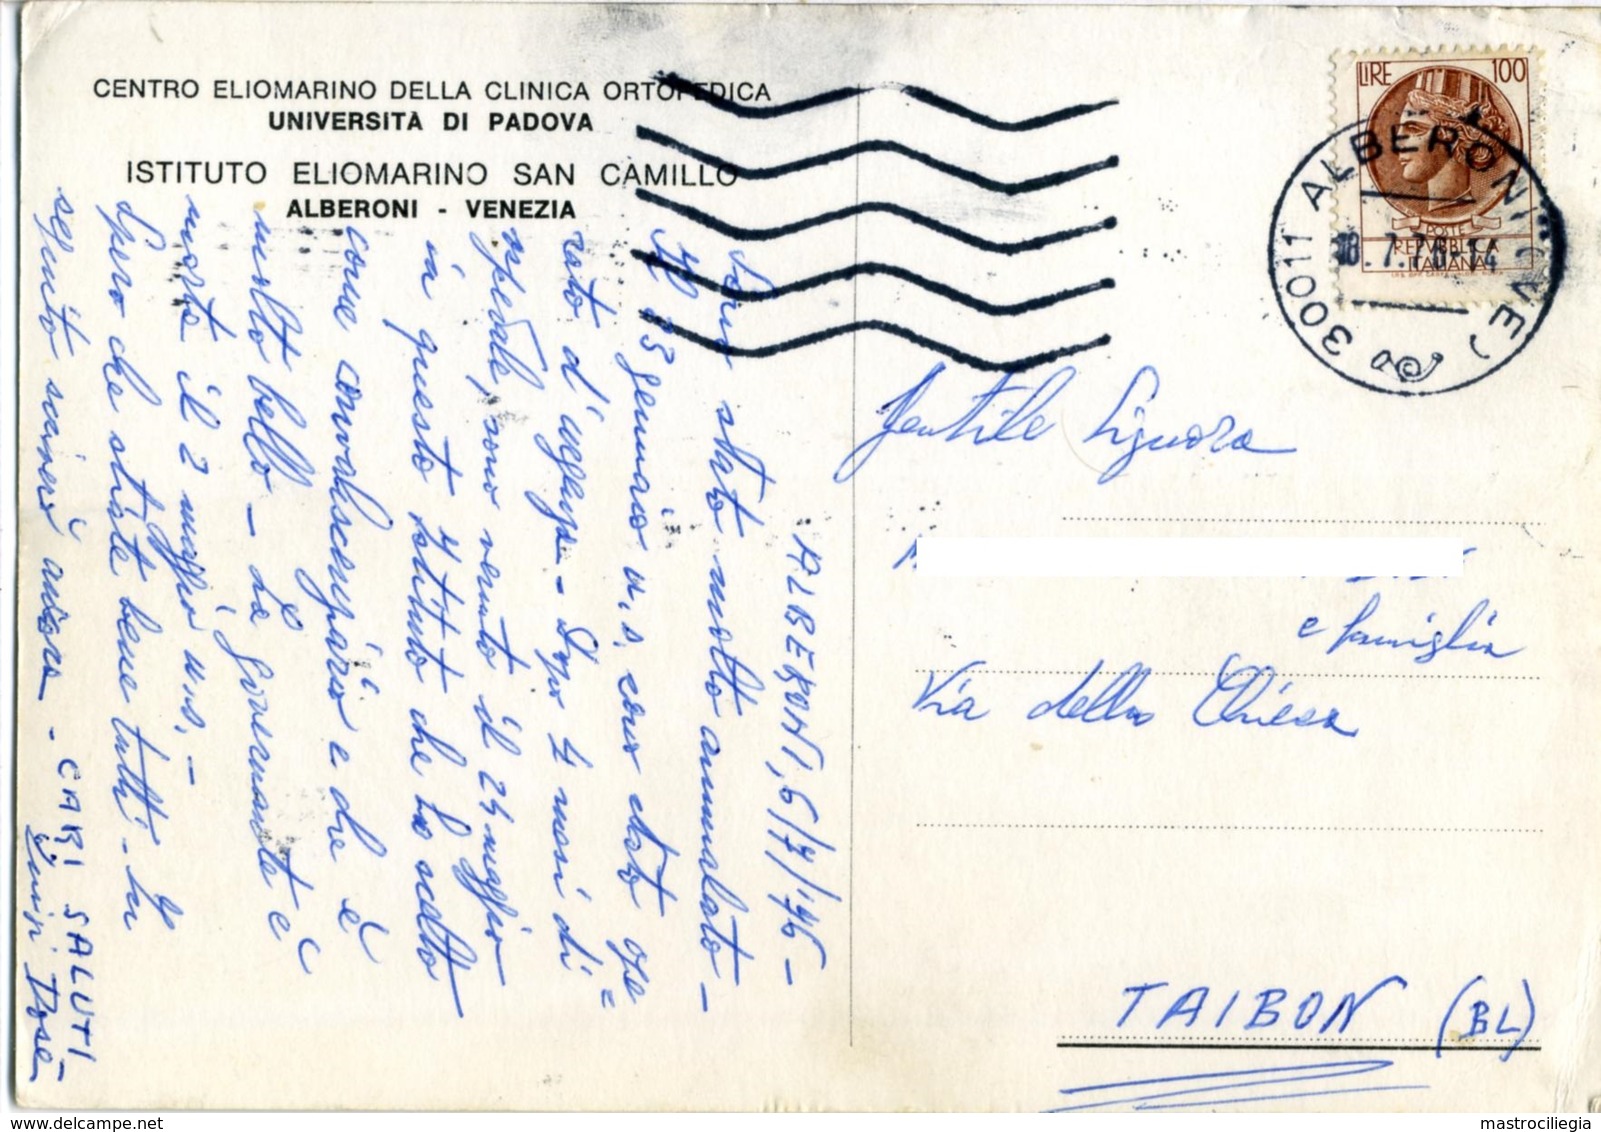 CENTRO ELIOMARINO DELLA CLINICA ORTOPEDICA
UNIVERSITÀ DI PADOVA
ISTITUTO ELIOMARINO SAN CAMILLO
ALBERONI - VENEZIA
LIRE 100
POSTE
REPVBBLICA
ITALIANA
30011 ALBERONI (VE)
18.7.76-14
ALBERONI, 6/7/'76-
Sono stato molto ammalato -
Il 23 gennaio u.s. sono stato ope=
rato d'urgenza - Dopo 4 mesi di
ospedale, sono venuto il 24 maggio
in questo istituto che ho scelto
come convalescenziario e che è
molto bello - La Governante è
morta il 2 maggio u.s. -
Spero che stiate bene tutti - In
seguito scriverò ancora - CARI SALUTI -
Gentile Signora
e famiglia
Via della Chiesa
TAIBON (BL)
mastrociliegia